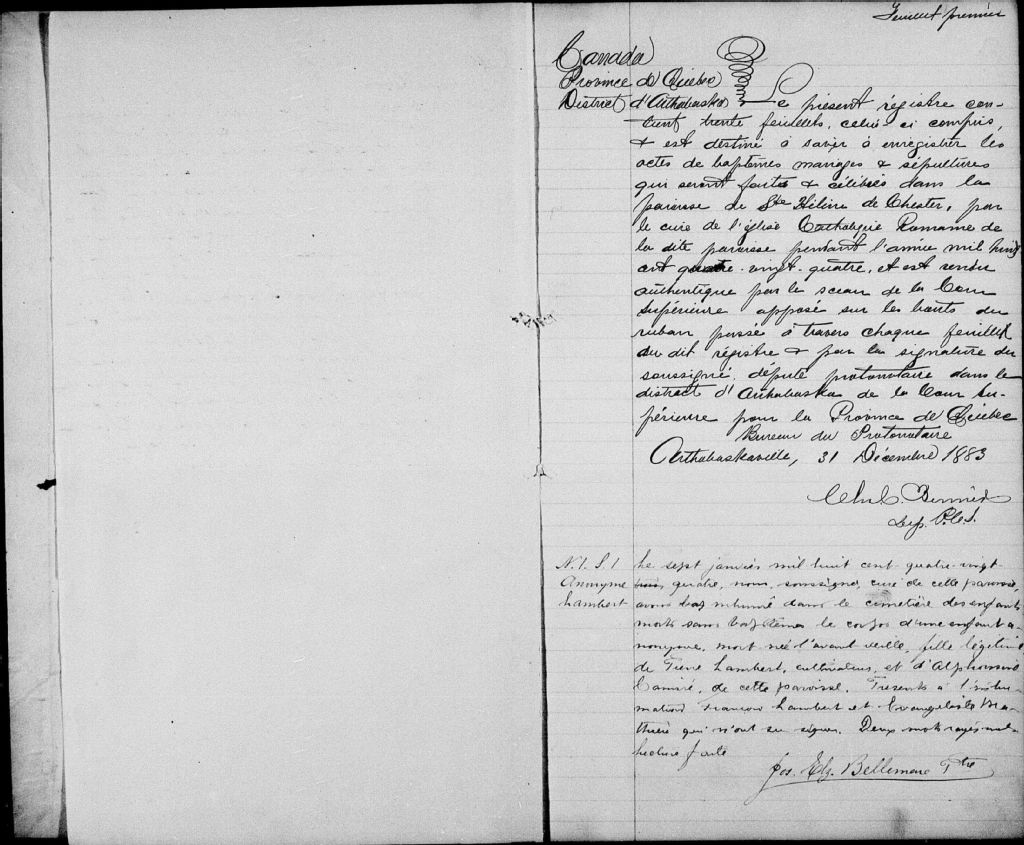 Feuillet premier
Canada
Province de Québec
District d'Arthabaska
Le présent régistre con-
tient trente feuillets, celui ci compris,
& est destiné à savoir à enregistrer les
actes de baptêmes mariages & sépultures
qui seront faits & célébrés dans la
paroisse de Ste Hélène de Chester, par
le curé de l'église Catholique Romaine de
la dite paroisse pendant l'année mil huit
cent quatre-vingt-quatre, et est rendu
authentique par le sceau de la Cour
Supérieure apposé sur les bouts du
ruban passé à travers chaque feuillet
du dit régistre & par la signature du
soussigné, député protonotaire dans le
district d'Arthabaska de la Cour Su-
périeure pour la Province de Québec
Bureau du Protonotaire
Arthabaskaville, 31 Décembre 1883
Chs. C. Bernier
Dep. P.C.S.
N. 1. S. 1
Anonyme
Lambert
Le sept janvier mil huit cent quatre-vingt
trois quatre, nous, soussigné, curé de cette paroisse,
avons inhumé dans le cimetière des enfants
morts sans baptême le corps d'une enfant a-
nonyme, mort née l'avant veille, fille légitime
de Pierre Lambert, cultivateur, et d'Alphonsine
Camiré, de cette paroisse. Présents à l'inhu-
mation Lambert et Evangeliste
qui n'ont su signer. Deux mots rayés nuls
Lecture faite
Jos. Elz. Bellemare Ptre